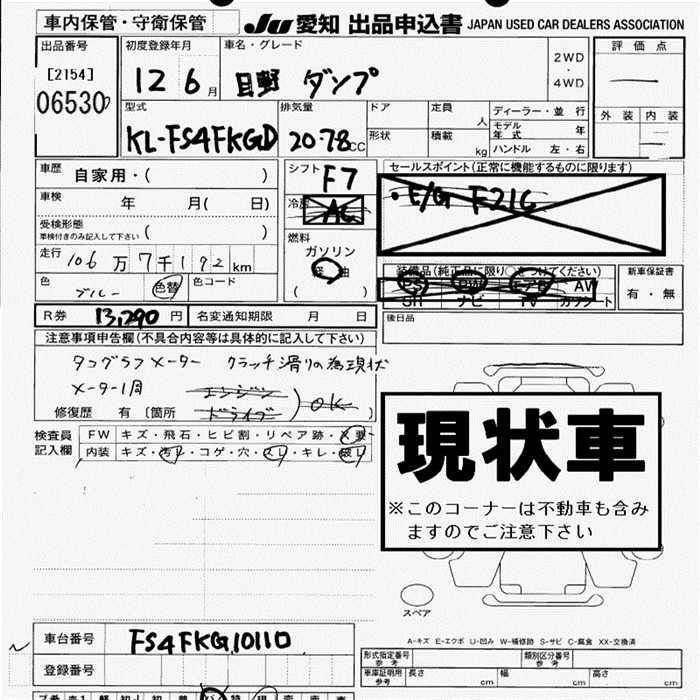 車内保管・守衛保管
JU 愛知 出品申込書 JAPAN USED CAR DEALERS ASSOCIATION
出品番号
[2154]
06530
初度登録年月
12 6月
車名・グレード
日野 ダンプ
2WD
・
4WD
評価点
外装 内装
型式
KL-FS4FKGD
排気量
20.78CC
ドア
形状
定員
人
積載
kg
ディーラー・並行
モデル年式 年
ハンドル 左・右
車歴
自家用・( )
車検
年 月( 日)
受検形態
車検付きのみ記入して下さい ( )
走行 106万7千192km
色 ブルー 色替 色コード
シフト F7
冷房 AC
燃料
ガソリン
軽油
( )
セールスポイント(正常に機能するものに限ります)
・E/G F21C
装備品(純正品に限り○をつけてください)
PS PW エアB AW
SR ナビ TV カワシート
新車保証書
有・無
R券 13,290円
名変通知期限 月 日
後日品
注意事項申告欄(不具合内容等は具体的に記入して下さい)
タコグラフメーター クラッチ滑りの為現状
メーター1周 エンジン
ドライブ)OK
修復歴 有〔箇所 〕
検査員記入欄
FW キズ・飛石・ヒビ割・リペア跡・X要
内装 キズ・汚レ・コゲ・穴・スレ・キレ・破レ
現状車
※このコーナーは不動車も含み
ますのでご注意下さい
スペア
A-キズ E-エクボ U-凹み W-補修跡 S-サビ C-腐食 XX-交換済
車台番号 FS4FKG10110
登録番号
形式指定番号
参考
類別区分番号
参考
車庫証明用
参考
長さ cm
幅 cm
高さ cm